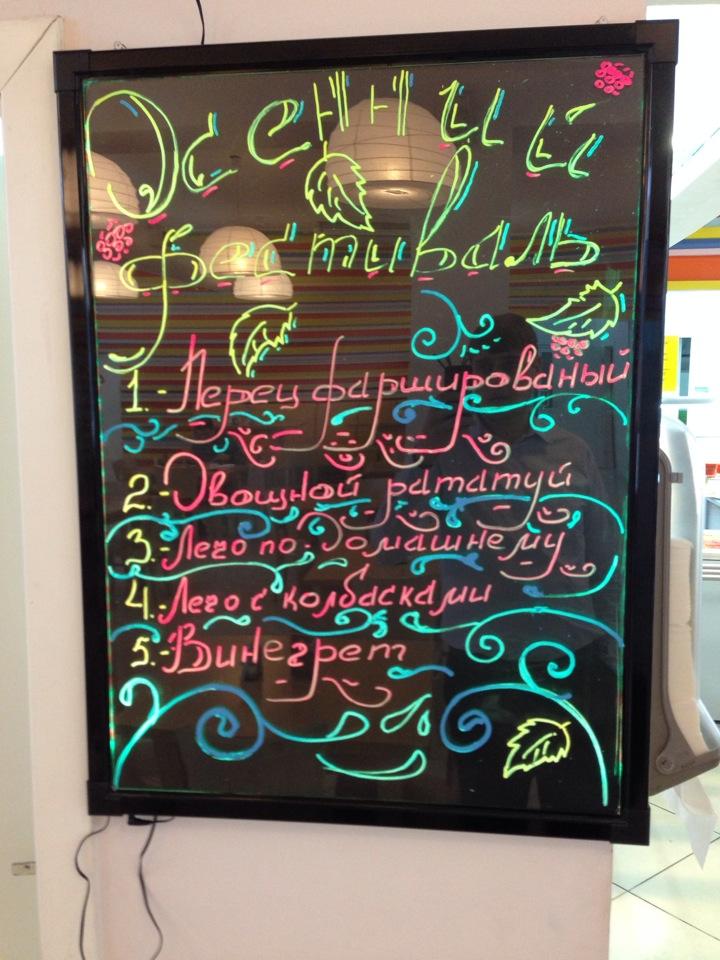 Осенний
фестиваль
1.- Перец фаршированый
2.- Овощной рататуй
3.- Лечо по-домашнему
4.- Лечо с колбасками
5.- Винегрет